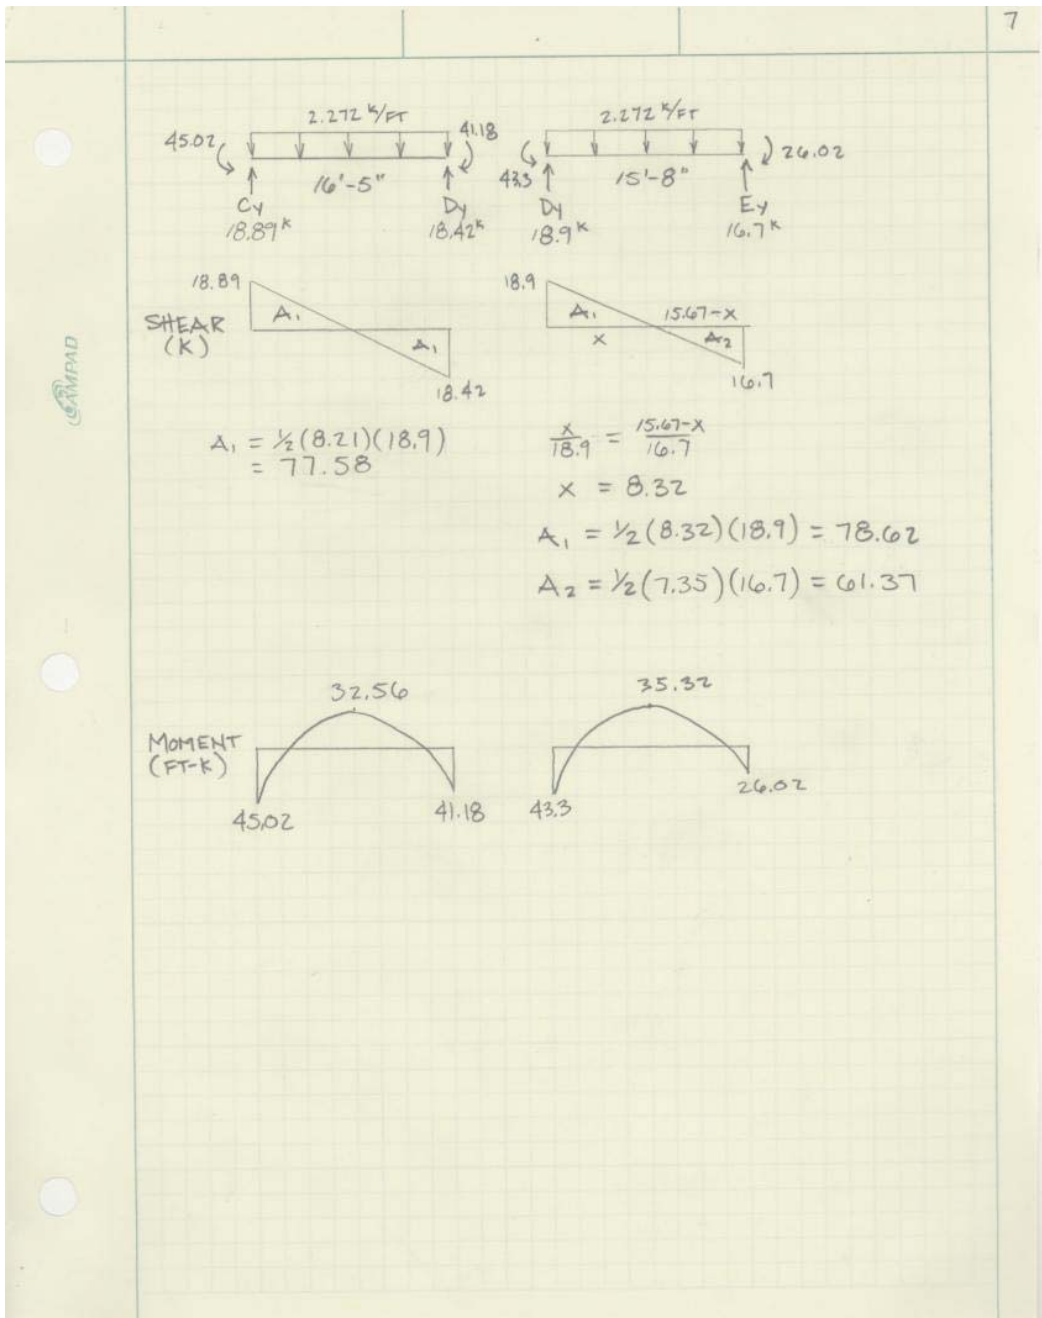 7
2.272 K/FT
45.02
41.18
16'-5"
Cy
Dy
18.89K
18.42K
2.272 K/FT
26.02
43.3
15'-8"
Dy
Ey
18.9K
16.7K
SHEAR
(K)
18.89
A1
A1
18.42
18.9
A1
15.67-X
X
A2
16.7
AMPAD
A1 = 1/2(8.21)(18.9)
= 77.58
X/18.9 = 15.67-X/16.7
X = 8.32
A1 = 1/2(8.32)(18.9) = 78.62
A2 = 1/2(7.35)(16.7) = 61.37
MOMENT
(FT-K)
32.56
45.02
41.18
35.32
43.3
26.02